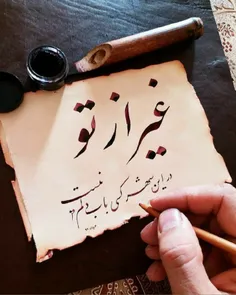 غیر از تو
در این شهر کسی باب دلم نیست